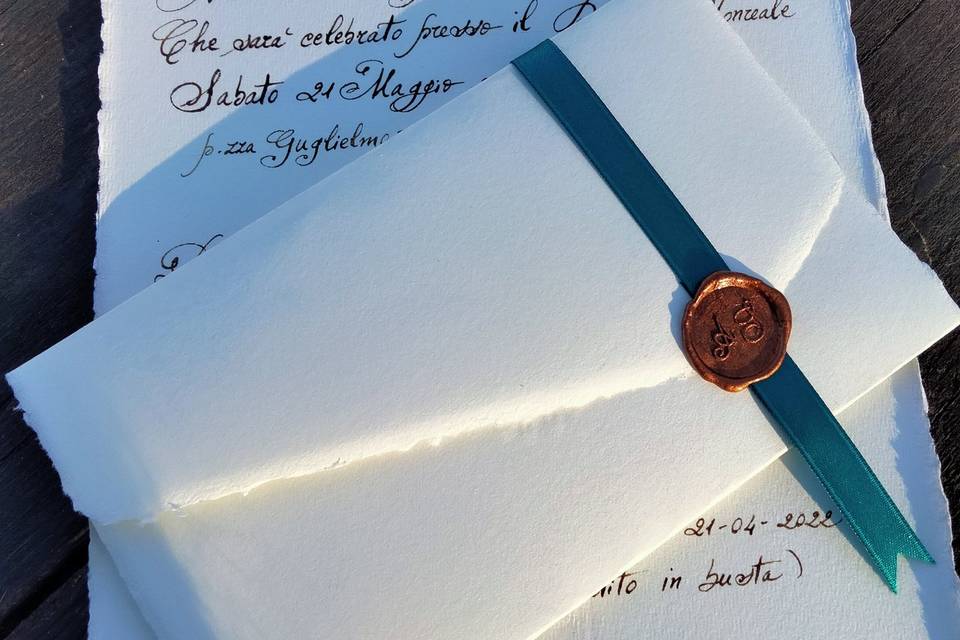 Che sarà celebrato presso il Monreale
Sabato 21 Maggio
p.zza Guglielmo
21-04-2022
in busta)